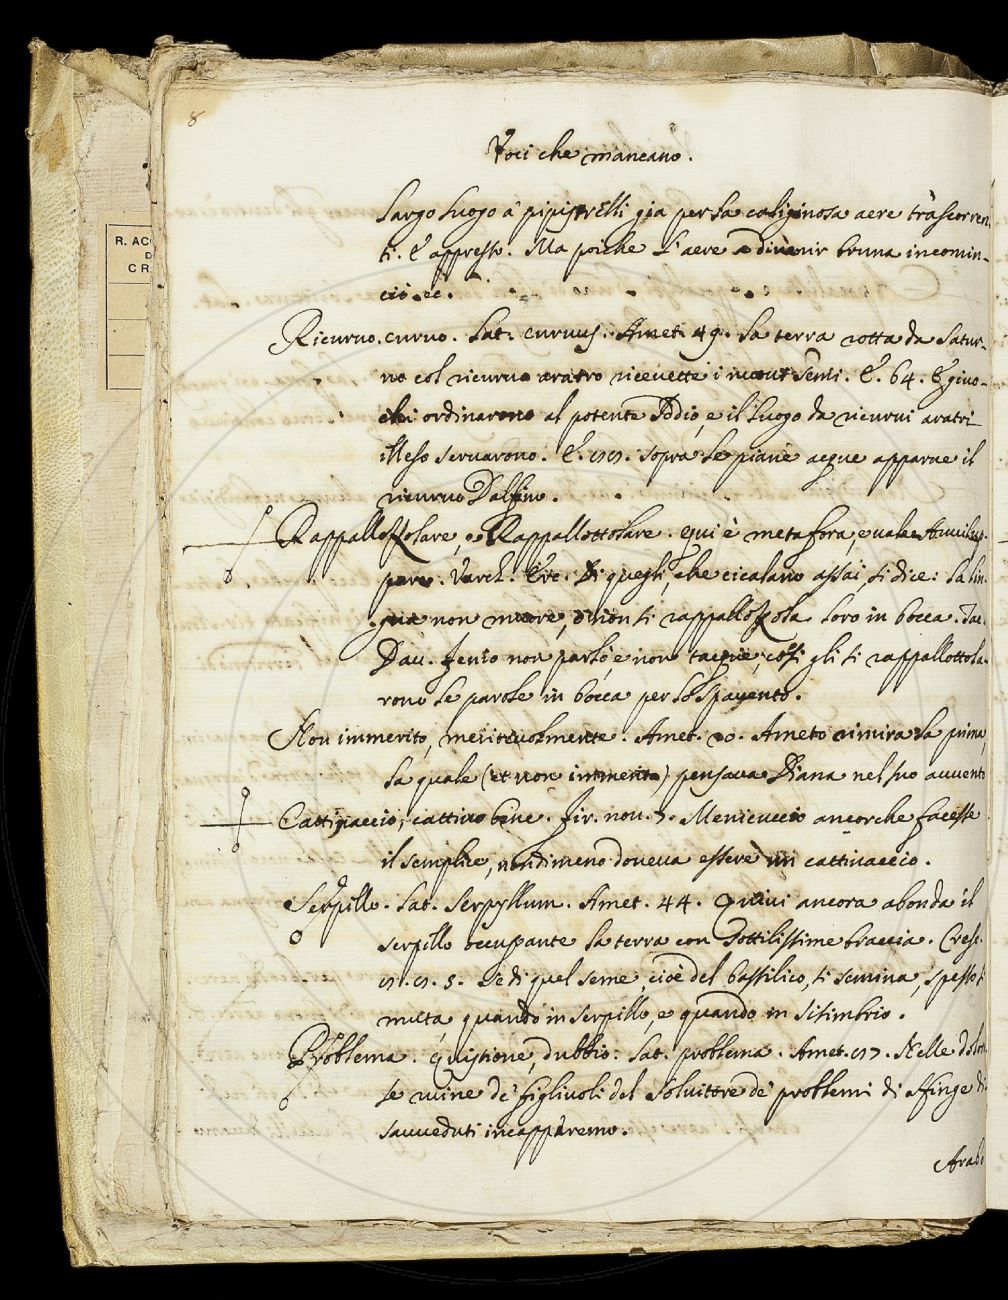 8
Voci che mancano.
R. AC
D
CR
largo luogo a pipistrelli gia per la caliginosa aere trascorren
ti. E appresso. Ma poiche l'aere a divenir bruna incomin-
ciò. ec.
Ricurvo. curvo. Lat. curvus. Amet. 49. la terra rotta da Satur-
no col ricurvo aratro ricevette i nuovi semi. E. 64. E giuo-
chi ordinarono al potente Dodio, e il luogo da ricurvi aratri
illeso servarono. E. 99. sopra le piane acque apparve il
ricurvo Dalfino.
Rappallozzolare, o Rappallottolare. qui è metafora, e vale Avvilup-
pare. Varch. Erc. Di quegli, che cicalano assai, si dice: la lin-
gua non muore, o non si rappallozzola loro in bocca. Tac.
Dav. Zenio non parlò, e non tacque, così gli si rappallottola-
rono le parole in bocca per lo spavento.
Non immerito, meritevolmente. Amet. 20. Ameto rimira la prima,
la quale (et non immerito) pensava Diana nel suo avvento
Cattivaccio, cattivo bene. Fir. nov. 7. Menicuccio ancorche facesse
il semplice, nondimeno doveva essere un cattivaccio.
Serpillo. Lat. Serpyllum. Amet. 44. Quivi ancora abonda il
serpillo occupante la terra con sottilissime braccia. Cresc.
5. Se di quel seme, cioè del bassilico, si semina, spesso si
muta, quando in serpillo, e quando in sisimbrio.
Problema. Quistione, dubbio. Lat. problema. Amet. 97. Nelle dolon
te ruine de' figliuoli del solvitore de' problemi di Sfinge di
savveduti incapparemo.
Arabo